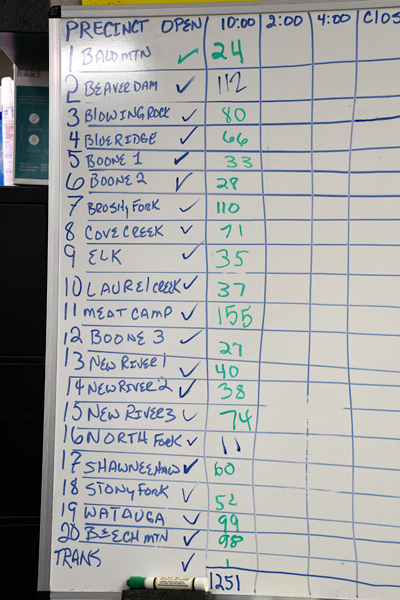 PRECINCT OPEN 10:00 2:00 4:00 CLOS
1 BALD MTN ✓ 24
2 BEAVER DAM ✓ 112
3 BLOWING ROCK ✓ 80
4 BLUE RIDGE ✓ 66
5 BOONE 1 ✓ 33
6 BOONE 2 ✓ 28
7 BRUSHY FORK ✓ 110
8 COVE CREEK ✓ 71
9 ELK ✓ 35
10 LAUREl CREEK ✓ 37
11 MEAT CAMP ✓ 155
12 BOONE 3 ✓ 27
13 NEW RIVER 1 ✓ 40
14 NEW RIVER 2 ✓ 38
15 NEW RIVER 3 ✓ 74
16 NORTH FORK ✓ 11
17 SHAWNEEHAW ✓ 60
18 STONY FORK ✓ 52
19 WATAUGA ✓ 99
20 BEECH MTN ✓ 98
TRANS ✓ 1
1251